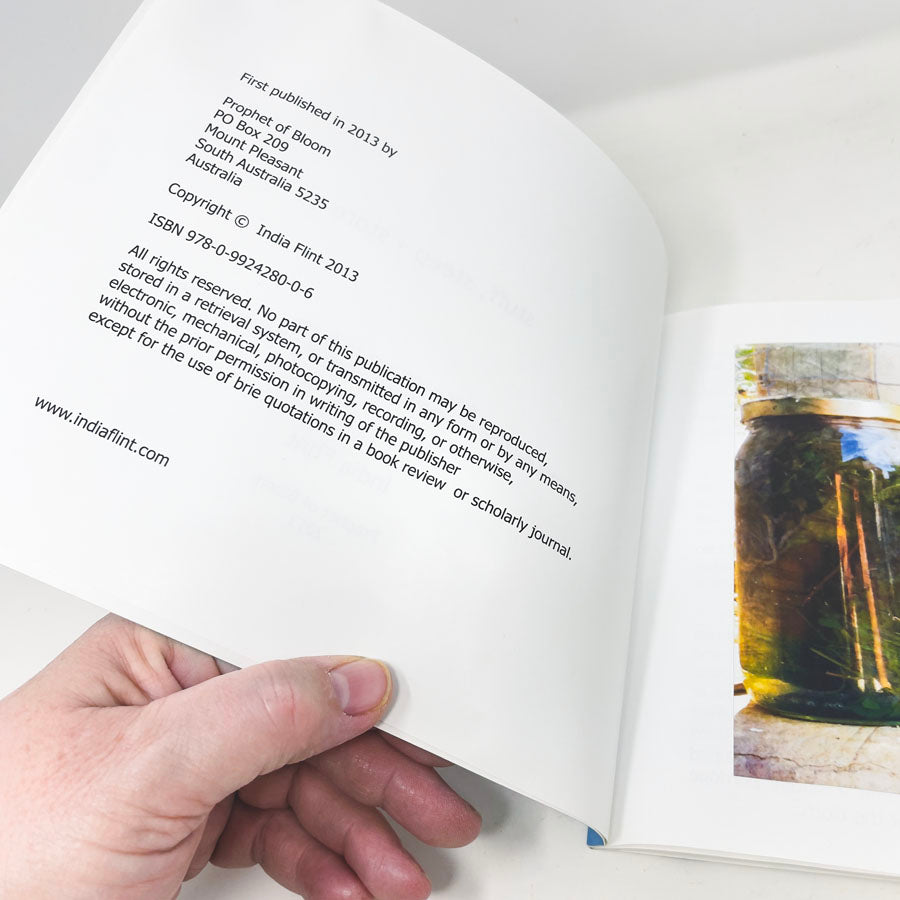 First published in 2013 by
Prophet of Bloom
PO Box 209
Mount Pleasant
South Australia 5235
Australia
Copyright © India Flint 2013
ISBN 978-0-9924280-0-6
All rights reserved. No part of this publication may be reproduced,
stored in a retrieval system, or transmitted in any form or by any means,
electronic, mechanical, photocopying, recording, or otherwise,
without the prior permission in writing of the publisher
except for the use of brie quotations in a book review or scholarly journal.
www.indiaflint.com